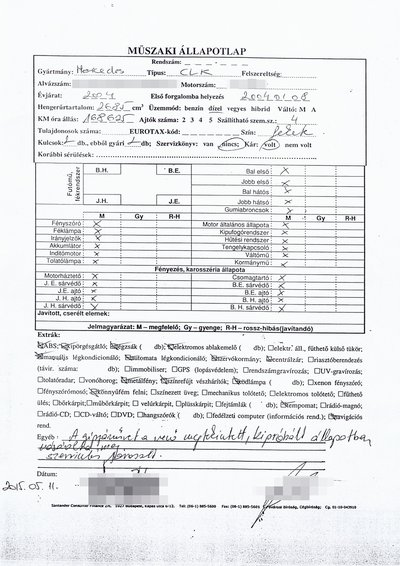 MŰSZAKI ÁLLAPOTLAP
Rendszám:
Gyártmány: Mercedes Típus: CLK Felszereltség:
Alvázszám: Motorszám:
Évjárat: 2004 Első forgalomba helyezés 2004.01.08
Hengerűrtartalom: 2685 cm³ Üzemmód: benzin dízel vegyes hibrid Váltó: M A
KM óra állás: 168625 Ajtók száma: 2 3 4 5 Szállítható szem.sz.: 4
Tulajdonosok száma: EUROTAX-kód: Szín: fekete
Kulcsok: 1 db, ebből gyári 1 db; Szervizkönyv: van nincs; Kár: volt nem volt
Korábbi sérülések:
Futómű, fékrendszer
B.H. B.E.
J.H. J.E.
Bal első X
Jobb első X
Bal hátsó X
Jobb hátsó X
Gumiabroncsok X
M Gy R-H M Gy R-H
Fényszóró X Motor általános állapota X
Féklámpa X Kipufogórendszer X
Irányjelzők X Hűtési rendszer X
Akkumulátor X Tengelykapcsoló X
Indítómotor X Váltómű X
Tolatólámpa X Kormánymű X
Fényezés, karosszéria állapota
Motorháztető X Csomagtartó X
J. E. sárvédő X B.E. sárvédő X
J.E. ajtó X B.E. ajtó X
J. H. ajtó X B. H. ajtó X
J.H. sárvédő X B. H. sárvédő X
Javított, cserélt elemek:
Jelmagyarázat: M – megfelelő; Gy – gyenge; R-H – rossz-hibás(javítandó)
Extrák:
ABS; kipörgésgátló; légzsák ( db); elektromos ablakemelő ( db); elektr. áll., fűthető külső tükör;
manuális légkondicionáló; automata légkondicionáló; szervókormány; centrálzár; riasztóberendezés
(távir. száma db); immobiliser; GPS (lopásvédelem); rendszámgravírozás; UV-gravírozás;
tolatóradar; vonóhorog; metálfény; színezett/fújt vészhárító; ködlámpa ( db); xenon fényszóró;
fényszórómosó; könnyűfém felni; színezett üveg; mechanikus tolótető; elektromos tolótető; fűthető
ülés; bőrkárpit; műbőrkárpit; velúrkárpit; plüsskárpit; fejtámlák ( db); tempomat; rádió-magnó;
rádió-CD; CD-váltó; DVD; hangszórók ( db); fedélzeti computer (információs rend.); navigációs
rend.
Egyéb: A gépjárművet a vevő megtekintett, kipróbált állapotban
vásárolta meg
Dátum:
2015.05.11.
Santander Consumer Finance Zrt. 1027 Budapest, Kapás utca 6-12. Tel: (06-1) 885-5600 Fax: (06-1) 885-5601 Fővárosi Bíróság, Cégbíróság: Cg. 01-10-043910